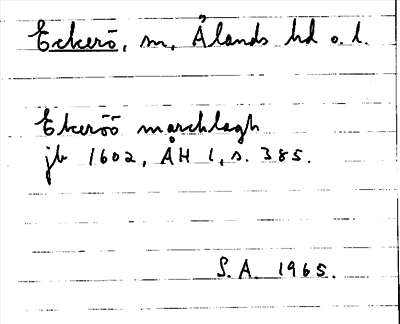 Eckerö, m, Ålands hd o. l.
Ekeröö marchlagh
jb 1602, ÅH 1, s. 385.
S.A. 1965.